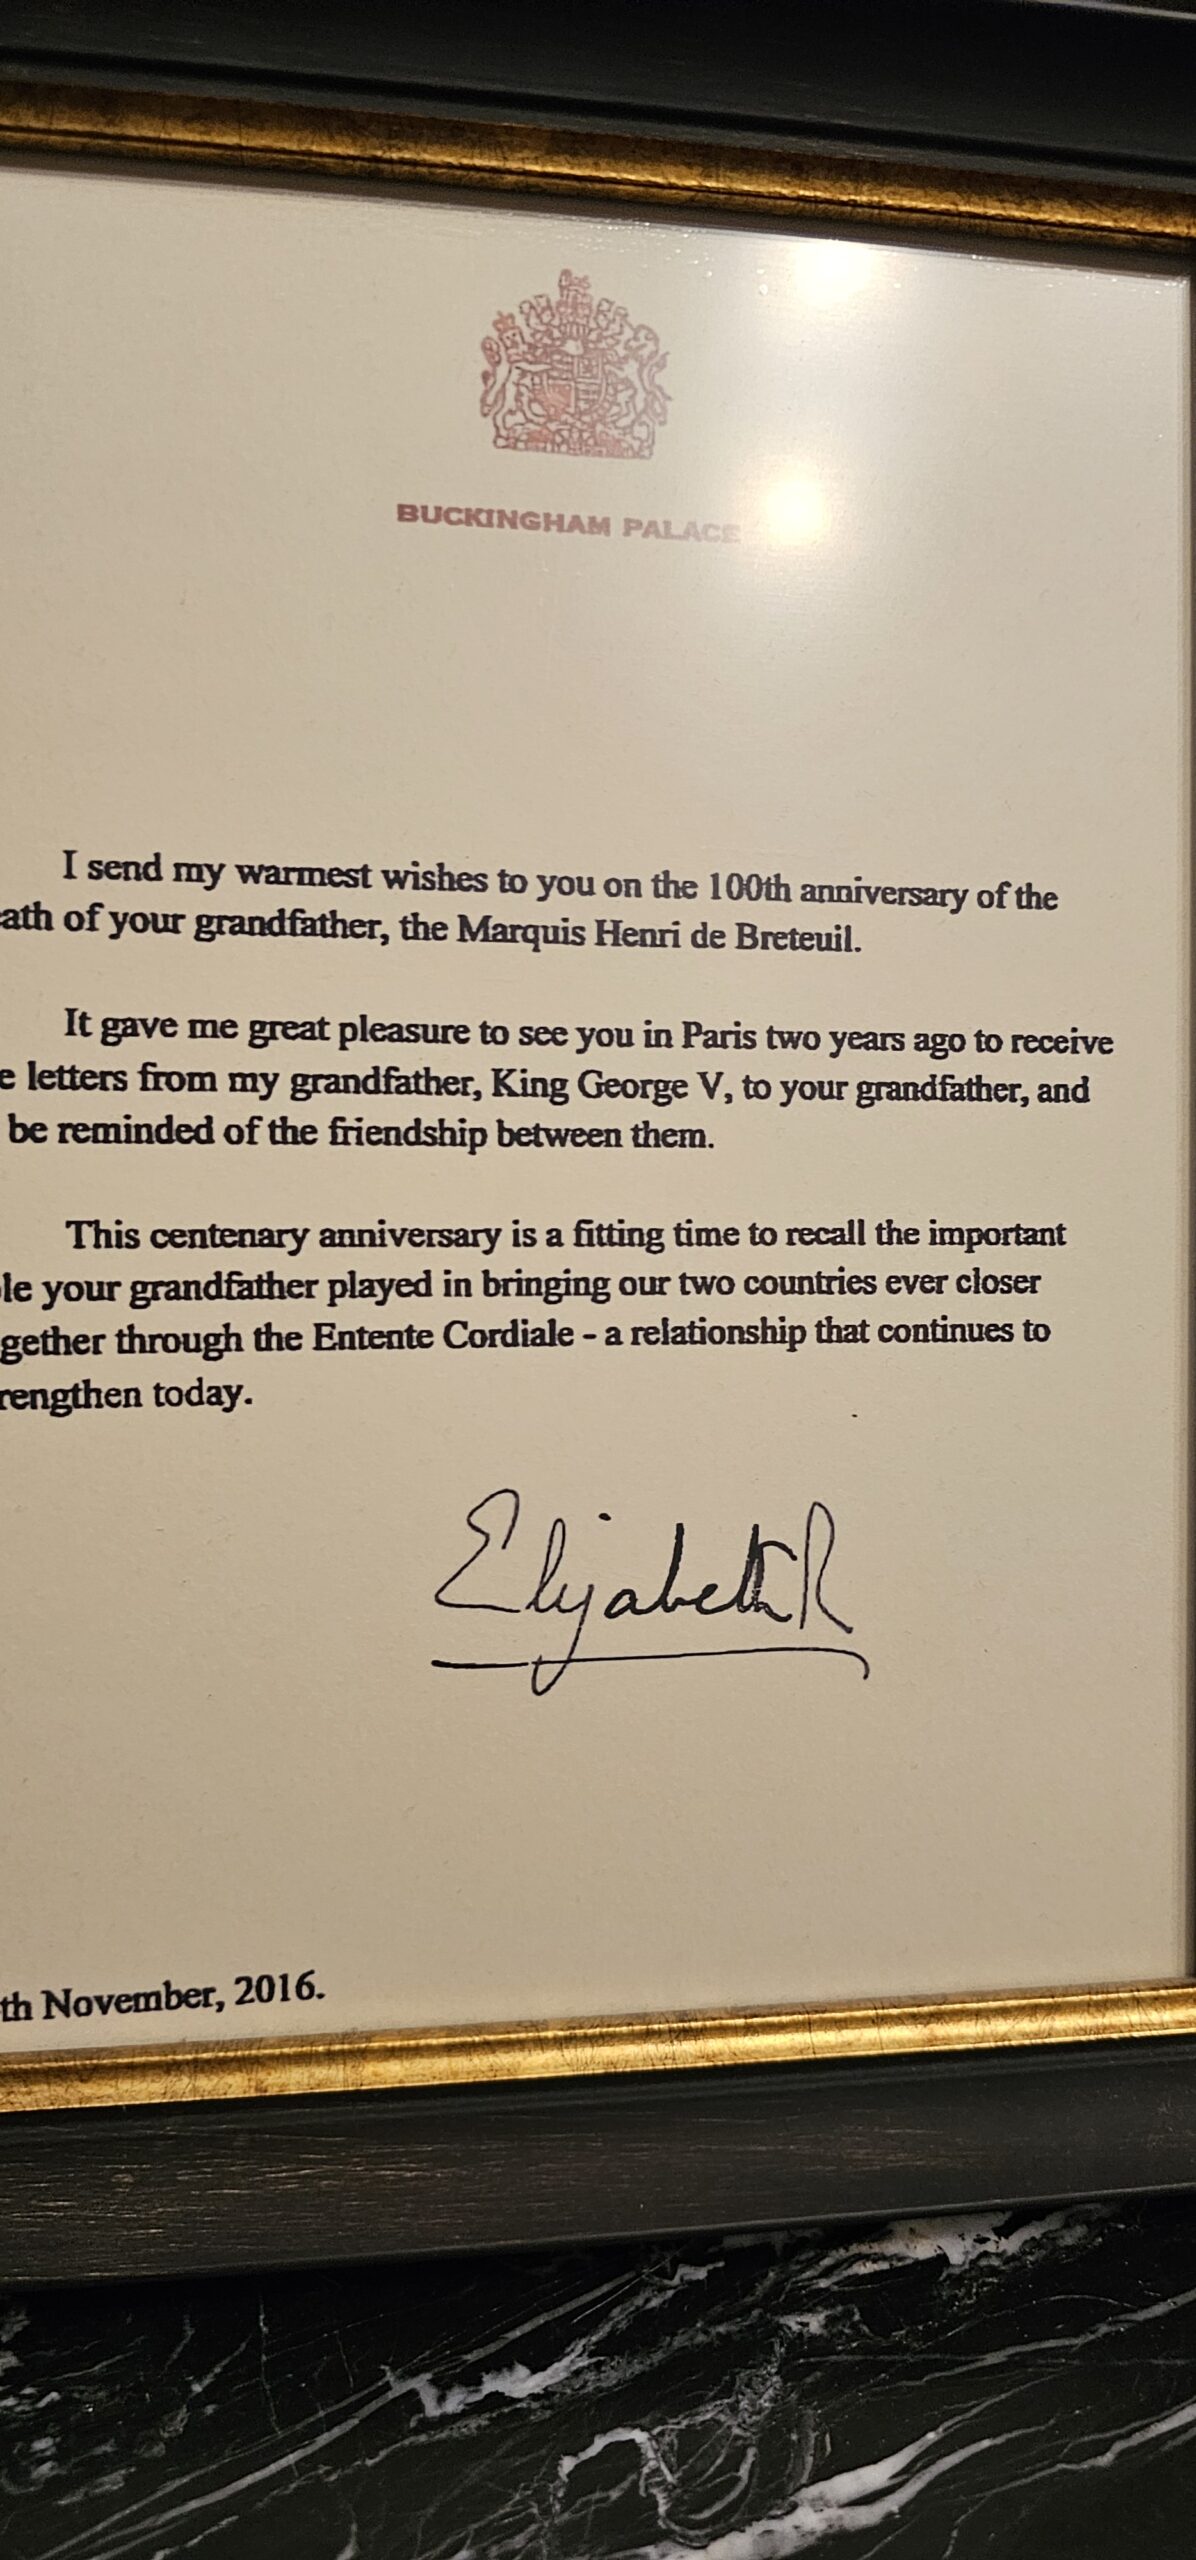 BUCKINGHAM PALACE
I send my warmest wishes to you on the 100th anniversary of the
ath of your grandfather, the Marquis Henri de Breteuil.
It gave me great pleasure to see you in Paris two years ago to receive
e letters from my grandfather, King George V, to your grandfather, and
be reminded of the friendship between them.
This centenary anniversary is a fitting time to recall the important
le your grandfather played in bringing our two countries ever closer
gether through the Entente Cordiale - a relationship that continues to
rengthen today.
Elizabeth R
th November, 2016.